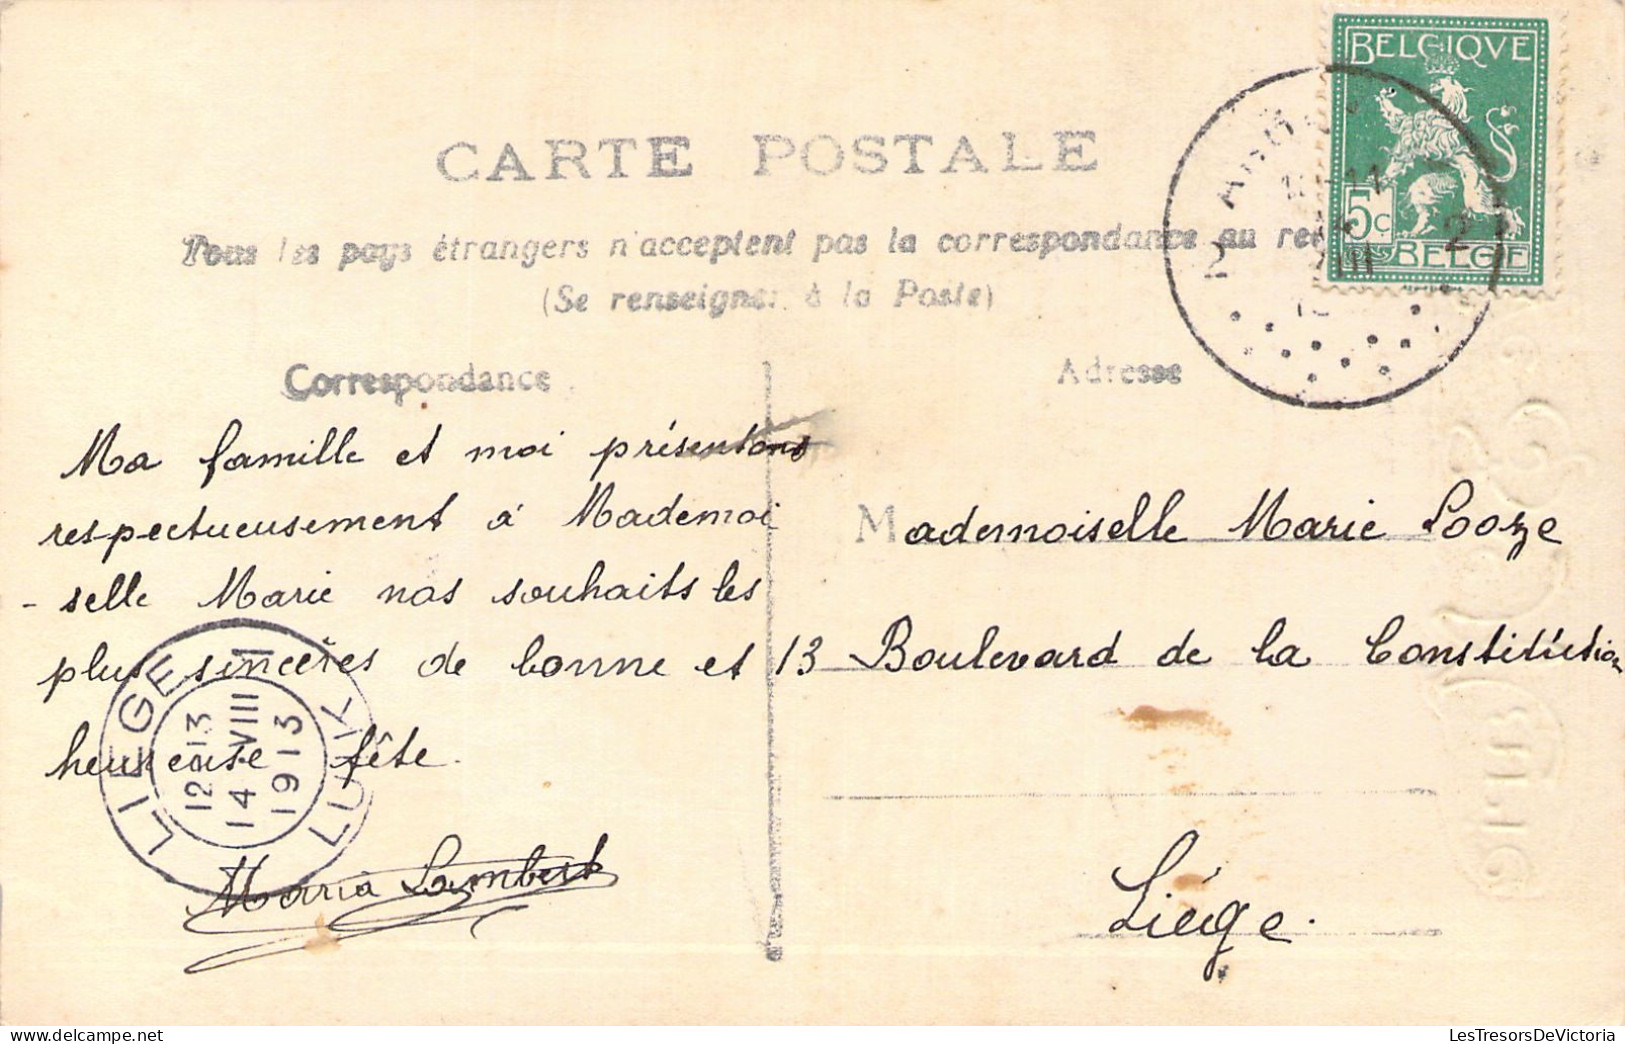 BELGIQVE
5c
BELGIE
CARTE POSTALE
Tous les pays étrangers n'acceptent pas la correspondance au
(Se renseigner à la Poste)
Correspondance
Adresse
Ma famille et moi présentons
respectueusement à Mademoi
- selle Marie nos souhaits les
plus sincères de bonne et
heureuse fête.
Maria Lambert
Mademoiselle Marie Looze
13 Boulevard de la Constitution
Liége.
LIEGE 1
LUIK
12-13
14 VIII
1913
LesTresorsDeVictoria